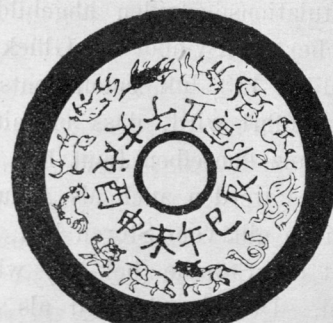 子丑寅卯辰巳午未申酉戌亥